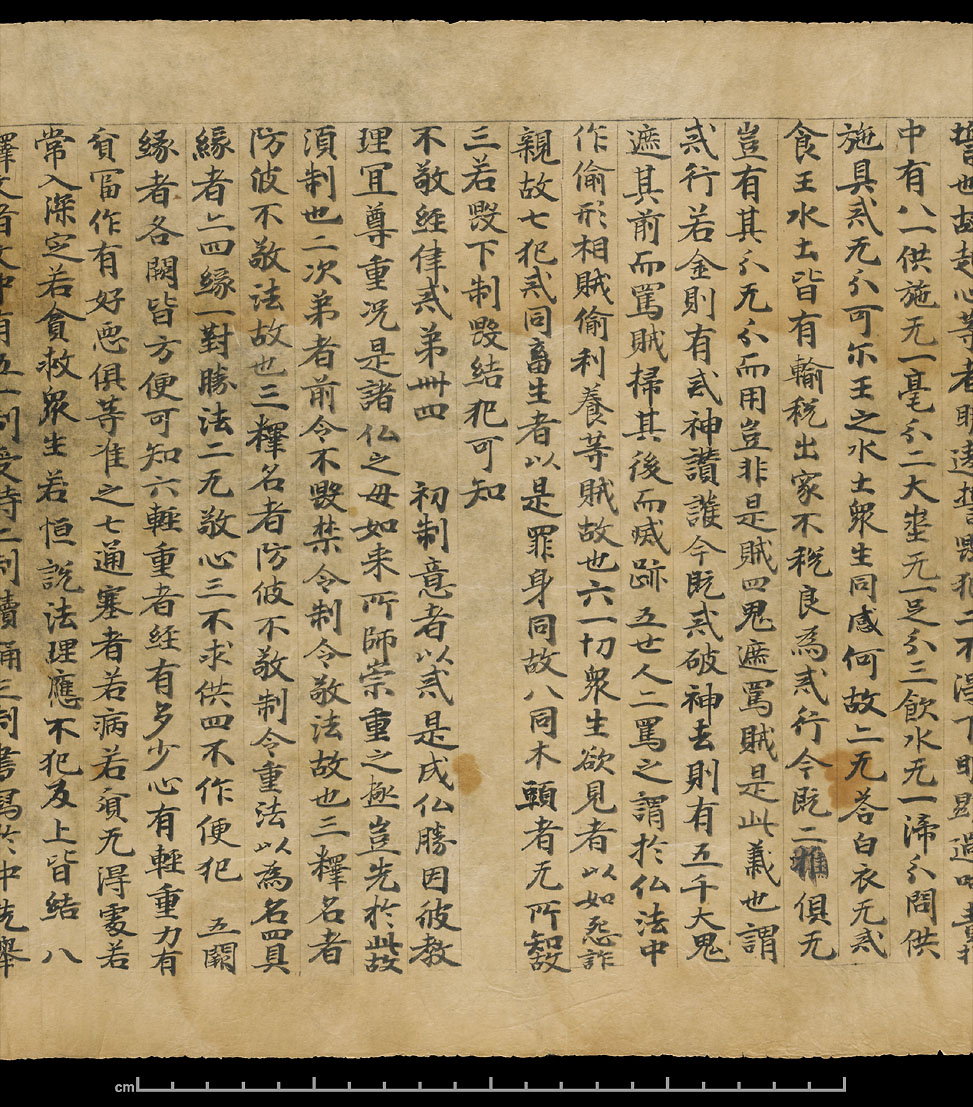 中有八供施无一毫分二大埊无一足分三飲水无一渧分問供
施具貳无分可尓王之水土衆生同感何故二无荅白衣无貳
食王水土皆有輸税出家不税良為貳行今既二雅俱无
豈有其分无分而用豈非是賊四鬼遮罵賊是此義也謂
貳行若金則有貳神讃護今既貳破神去則有五千大鬼
遮其前而罵賊掃其後而滅跡五世人二罵之謂扵仏法中
作偷形相賊偷利養等賊故也六一切衆生欲見者以如怨詐
親故七犯貳同畜生者以是罪身同故八同木頭者无所知故
三若毀下制毀結犯可知
不敬経律貳第卌四 初制意者以貳是成仏勝因彼教
理冝尊重况是諸仏之母如来所師崇重之極豈先扵此故
湏制也二次弟者前令不毀禁令制令敬法故也三釋名者
防彼不敬法故也三釋名者防彼不敬制令重法以為名四具
緣者亠四緣一對勝法二无敬心三不求供四不作便犯 五闕
緣者各闕皆方便可知六輕重者経有多少心有輕重力有
貧冨作有好悪俱等准之七通塞者若病若貧无得處若
常入深定若貪救衆生若恒説法理應不犯及上皆結 八
釋文者文中有五一制受持二制讀誦三制書寫扵中先舉